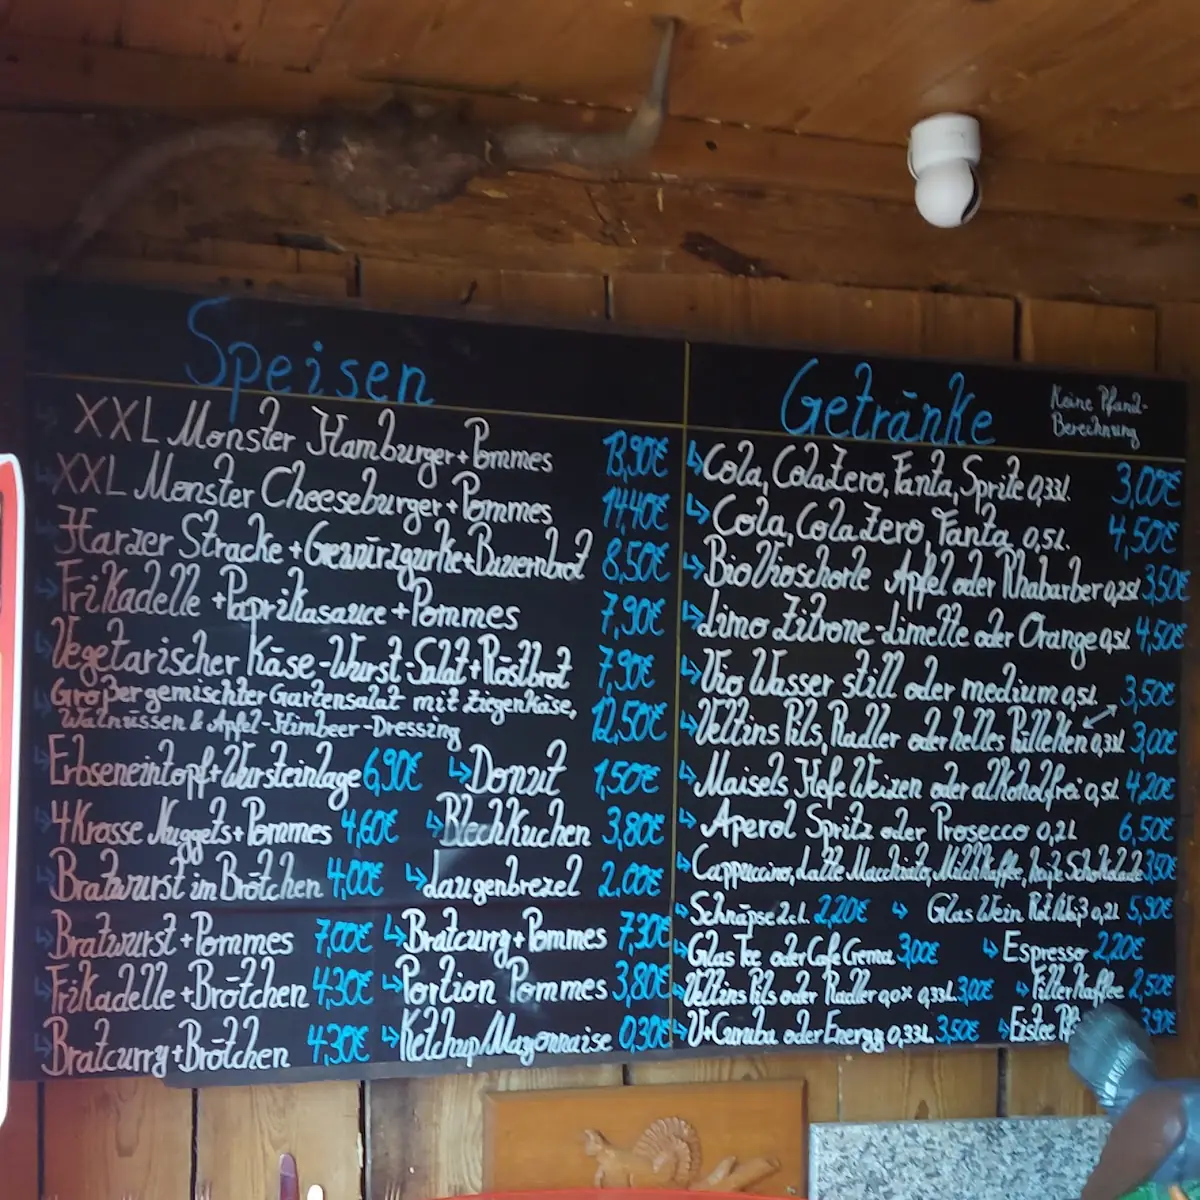 Speisen
XXL Monster Hamburger + Pommes 13,90€
XXL Monster Cheeseburger + Pommes 14,40€
Harzer Stracke + Gewürzgurke + Bauernbrot 8,50€
Frikadelle + Paprikasauce + Pommes 7,90€
Vegetarischer Käse-Wurst-Salat + Röstbrot 7,90€
Großer gemischter Gartensalat mit Ziegenkäse,
Walnüssen & Apfel-Himbeer-Dressing 12,50€
Erbseneintopf + Wursteinlage 6,90€ ↳ Donut 1,50€
4 Krosse Nuggets + Pommes 4,60€ ↳ Blechkuchen 3,80€
Bratwurst im Brötchen 4,00€ ↳ Laugenbrezel 2,00€
↳ Bratwurst + Pommes 7,00€ ↳ Bratcurry + Pommes 7,30€
↳ Frikadelle + Brötchen 4,30€ ↳ Portion Pommes 3,80€
Bratcurry + Brötchen 4,30€ ↳ Ketchup/Mayonnaise 0,30€
Getränke
Keine Pfand-
Berechnung
↳ Cola, Cola Zero, Fanta, Sprite 0,33l. 3,00€
↳ Cola, Cola Zero, Fanta 0,5l. 4,50€
↳ Bio Vioschorle Apfel oder Rhabarber 0,25l 3,50€
↳ Limo Zitrone-Limette oder Orange 0,5l 4,50€
↳ Vio Wasser still oder medium 0,5l. 3,50€
↳ Veltins Pils, Radler oder helles Pülleken 0,33l 3,00€
↳ Maisels Hefe Weizen oder alkoholfrei 0,5l 4,20€
↳ Aperol Spritz oder Prosecco 0,2l 6,50€
↳ Cappuccino, Latte Macchiato, Milchkaffee, heiße Schokolade 3,50€
↳ Schnäpse 2cl. 2,20€ ↳ Glas Wein Rot/Weiß 0,2l 5,90€
↳ Glas Tee oder Cafe Crema 3,00€ ↳ Espresso 2,20€
↳ Veltins Pils oder Radler 0,0% 0,33l. 3,00€ ↳ Filterkaffee 2,50€
↳ V+ Curuba oder Energy 0,33l. 3,50€ ↳ Eistee 3,90€